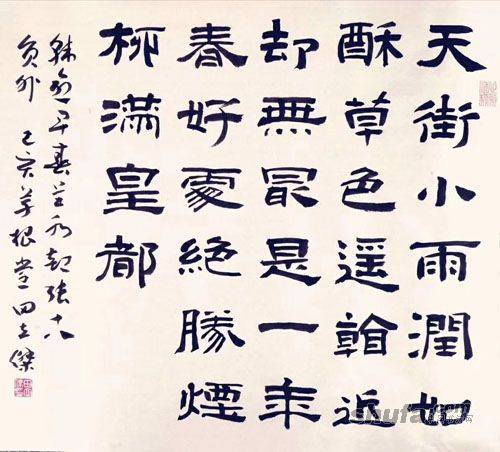 天街小雨潤如
酥草色遥看近
却無最是一年
春好處絕勝煙
柳滿皇都
韓愈早春呈水部張十八
員外 己亥草根堂田立傑